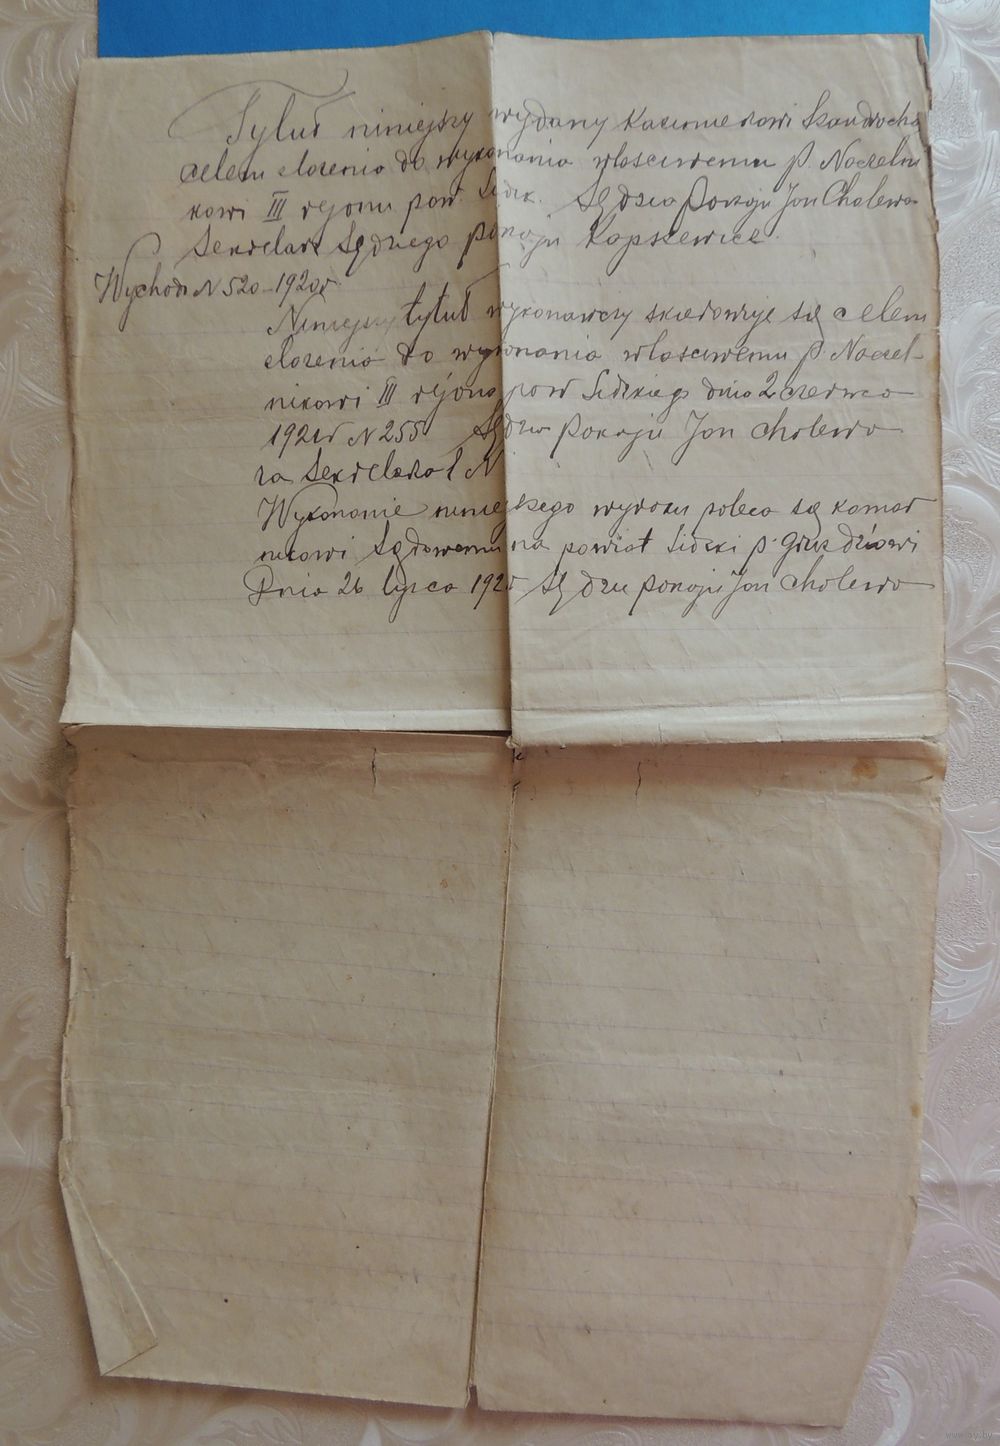 Tytuł niniejszy wydany Kazimierowi
celem złożenia do wykonania własciwemu p. Naczelni
kowi III rejonu pow. Lidzk. Sędzia Pokoju Jan Cholewo
Sekretarz Sędziego pokoju Kopszewicz
Wychodz N 520 - 1920r
Niniejszy tytuł wykonawczy skierowuje się celem
złożenia do wykonania własciwemu p. Naczel-
nikowi III rejonu pow Lidzkiego dnia 2 czerwca
1921r N 255 Sędzia Pokoju Jan Cholewo
za Sekretarza
Wykonanie niniejszego wyroku poleca się komor
nikowi Sądowemu na powiat Lidzki p.
Dnia 26 lipca Sędzia pokoju Jan Cholewo